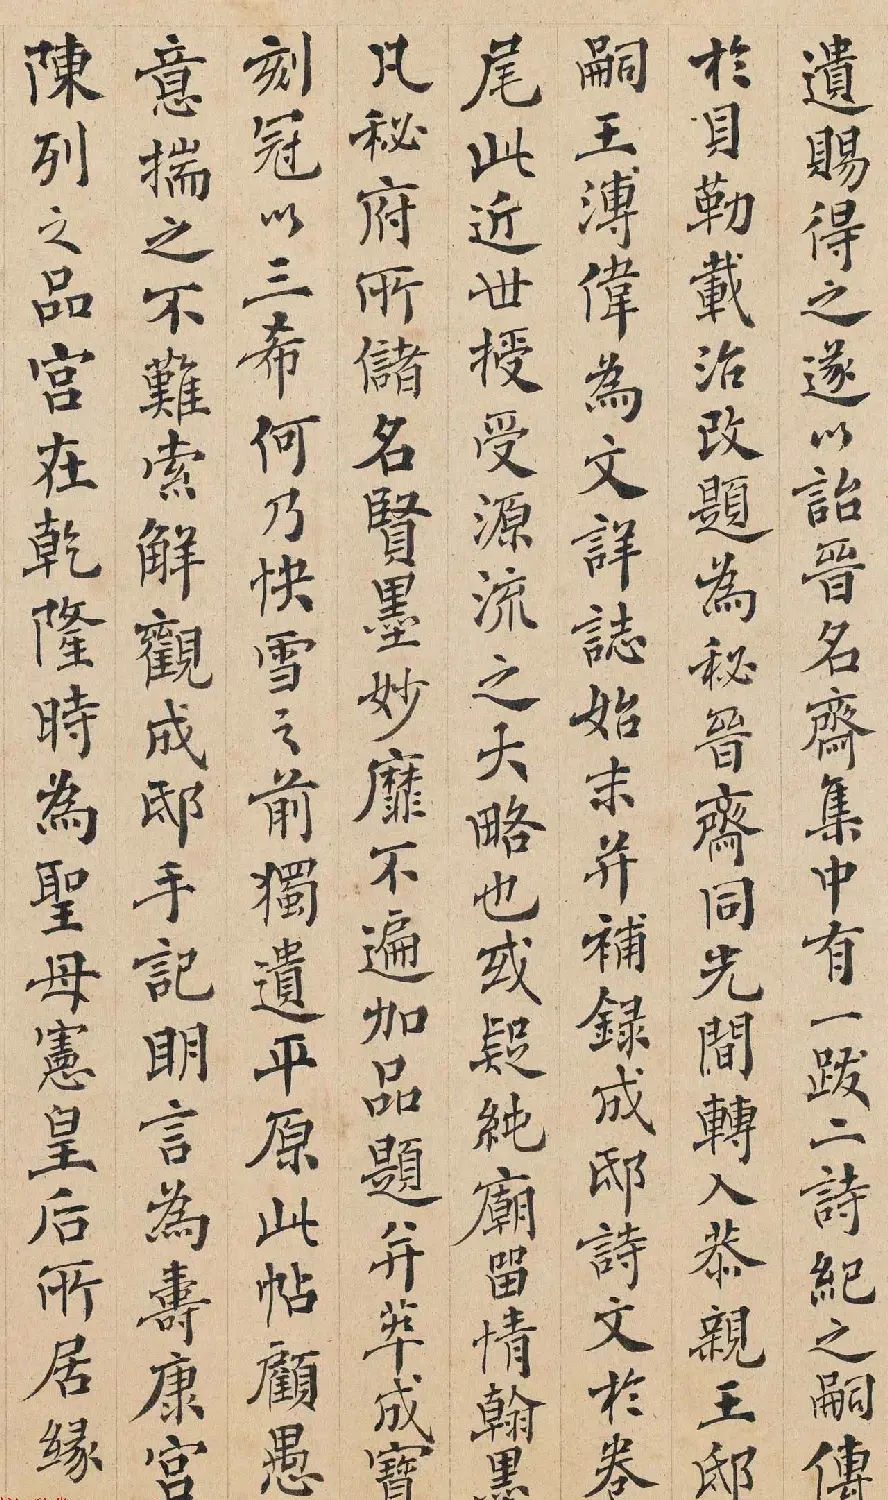 遺賜得之遂以詒晉名齋集中有一跋二詩紀之嗣傳
於貝勒載治改題為秘晉齋同光間轉入恭親王邸
嗣王溥偉為文詳誌始末并補録成邸詩文於卷
尾此近世授受源流之大略也或疑純廟留情翰墨
凡秘府所儲名賢墨妙靡不遍加品題并萃成寶
刻冠以三希何乃快雪之前獨遺平原此帖顧愚
意揣之不難索解觀成邸手記明言為壽康宮
陳列之品宮在乾隆時為聖母憲皇后所居緣